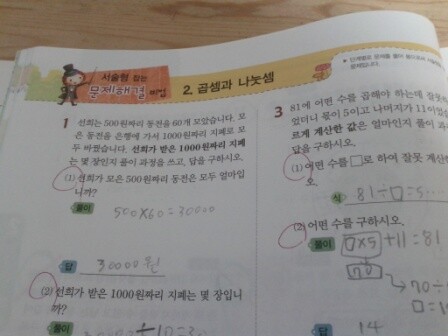 서술형 잡는
문제해결 비법
2. 곱셈과 나눗셈
1 선희는 500원짜리 동전을 60개 모았습니다. 모
은 동전을 은행에 가서 1000원짜리 지폐로 모
두 바꿨습니다. 선희가 받은 1000원짜리 지폐
는 몇 장인지 풀이 과정을 쓰고, 답을 구하시오.
(1) 선희가 모은 500원짜리 동전은 모두 얼마입
니까?
풀이
500×60=30000
답 30000원
(2) 선희가 받은 1000원짜리 지폐는 몇 장입니
까?
풀이
3 81에 어떤 수를 곱해야 하는데 잘못
었더니 몫이 5이고 나머지가 11이었습
르게 계산한 값은 얼마인지 풀이 과
답을 구하시오.
(1) 어떤 수를 □로 하여 잘못 계산한
오.
식 81÷□=5
(2) 어떤 수를 구하시오.
풀이 □×5+11=81
70
70÷
답 14